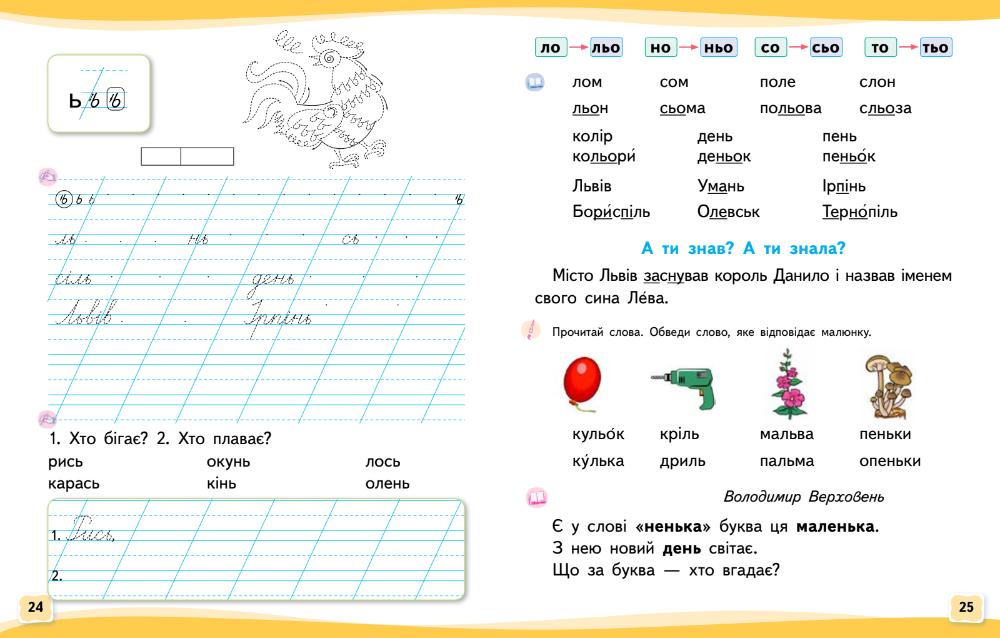 ь ь ь
ь ь ь ь
ль нь сь
сіль день
Львів Ірпінь
1. Хто бігає? 2. Хто плаває?
рись окунь лось
карась кінь олень
1. Рись,
2.
24
ло → льо но → ньо со → сьо то → тьо
лом сом поле слон
льон сьома польова сльоза
колір день пень
кольори́ деньок пеньо́к
Львів Умань Ірпінь
Бори́спіль Олевськ Терно́піль
А ти знав? А ти знала?
Місто Львів заснував король Данило і назвав іменем
свого сина Ле́ва.
Прочитай слова. Обведи слово, яке відповідає малюнку.
кульо́к кріль мальва пеньки
ку́лька дриль пальма опеньки
Володимир Верховень
Є у слові «ненька» буква ця маленька.
З нею новий день світає.
Що за буква — хто вгадає?
25